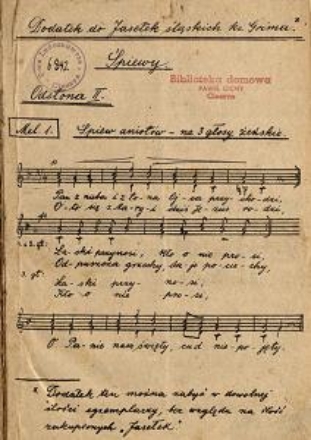 Dodatek do Jasełek śląskich ks. Grima.*
Śpiewy.
6942
Biblioteka domowa
PAWEŁ CICHY
Cisownica
Odsłona II.
Mel. 1. Śpiew aniołów – na 3 głosy żeńskie.
Pan z nieba i z łona Ojca przychodzi,
Oto się z Maryi dziś Jezus rodzi,
1. i 2. gł.
Łaski przynosi, kto o nie prosi,
Odpuszcza grzechy, daje pociechy,
3. gł.
Łaski przynosi,
Kto o nie prosi,
O Panie nasz święty, cud niepojęty.
* Dodatek ten można nabyć w dowolnej
ilości egzemplarzy, bez względu na ilość
zakupionych „Jasełek".